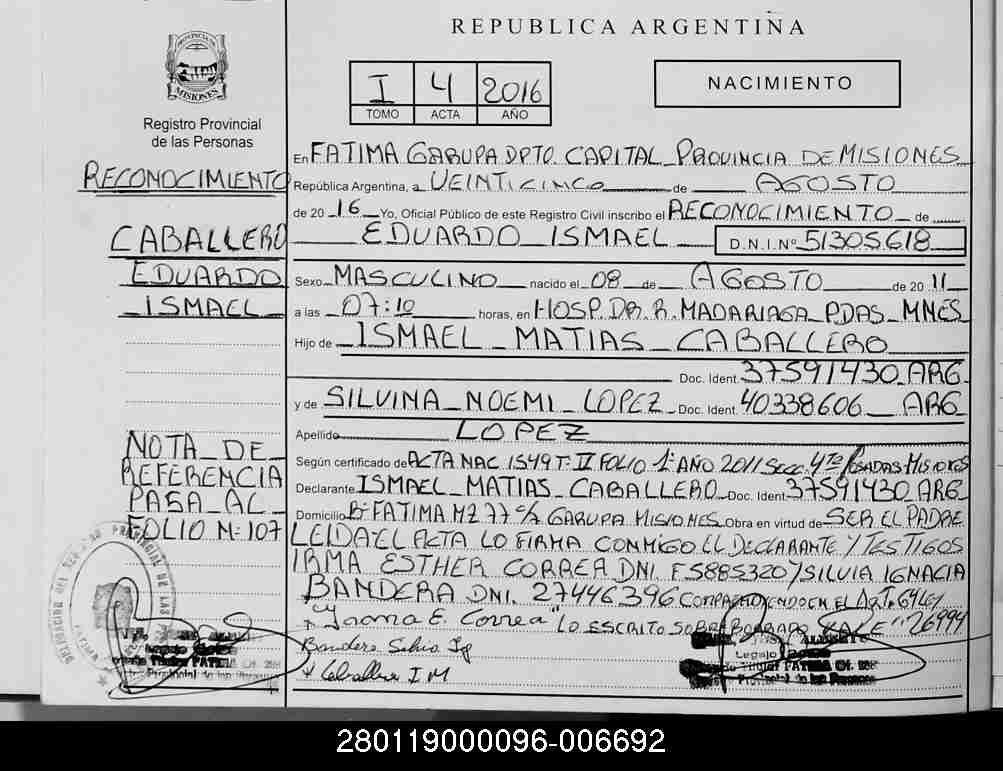 REPUBLICA ARGENTINA
PROVINCIA DE
MISIONES
Registro Provincial
de las Personas
I 4 2016
TOMO ACTA AÑO
NACIMIENTO
RECONOCIMIENTO
CABALLERO
EDUARDO
ISMAEL
NOTA DE
REFERENCIA
PASA AL
FOLIO N: 107
En FATIMA GARUPA DPTO. CAPITAL PROVINCIA DE MISIONES
República Argentina, a VEINTICINCO de AGOSTO
de 2016 Yo, Oficial Público de este Registro Civil inscribo el RECONOCIMIENTO de
EDUARDO ISMAEL D.N.I.Nº 51305618
Sexo MASCULINO nacido el 08 de AGOSTO de 2011
a las 07:10 horas, en HOSP. DR. R. MADARIAGA PDAS MNES
Hijo de ISMAEL MATIAS CABALLERO
Doc. Ident. 37591430 ARG
y de SILVINA NOEMI LOPEZ Doc. Ident. 40338606 ARG
Apellido LOPEZ
Según certificado de ACTA NAC 1549 T: II FOLIO 1º AÑO 2011 SECC. 4ta POSADAS MISIONES
Declarante ISMAEL MATIAS CABALLERO Doc. Ident. 37591430 ARG
Domicilio Bº FATIMA MZ 77 C/2 GARUPA MISIONES Obra en virtud de SER EL PADRE
LEIDA EL ACTA LO FIRMA CONMIGO EL DECLARANTE Y TESTIGOS
IRMA ESTHER CORREA DNI. F5885320 / SILVIA IGNACIA
BANDERA DNI. 27446396 EN EL ART. LEY
Irma E. Correa "LO ESCRITO SOBRE BORRADO VALE" 26994
Bandera Silvia Ig
Caballero I M
Legajo
Titular FATIMA Of.
Provincial de las Personas
Legajo
Titular FATIMA Of.
Provincial de las Personas
280119000096-006692